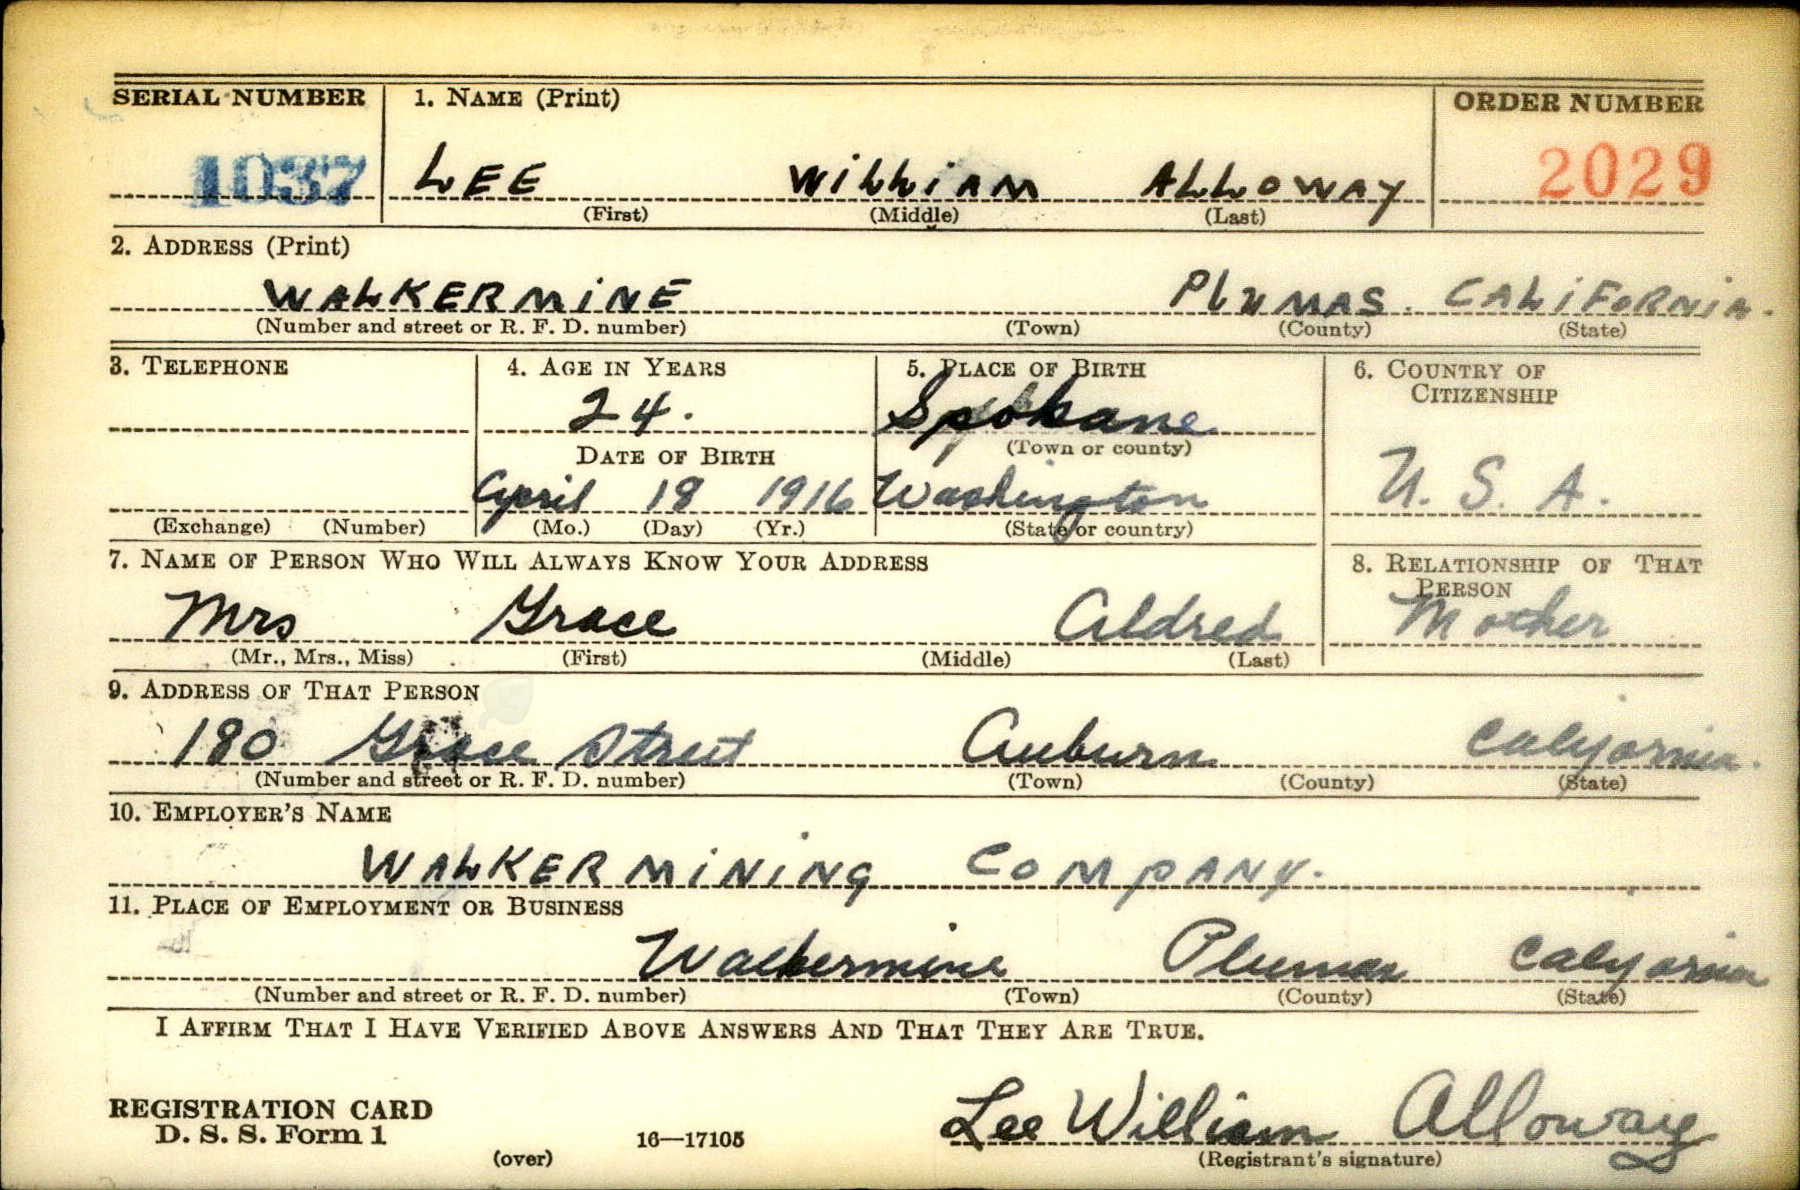 SERIAL NUMBER 1. NAME (Print) ORDER NUMBER
1037 LEE WILLIAM ALLOWAY 2029
(First) (Middle) (Last)
2. ADDRESS (Print)
WALKERMINE PlUMAS. CALIFORNIA.
(Number and street or R. F. D. number) (Town) (County) (State)
3. TELEPHONE 4. AGE IN YEARS 5. PLACE OF BIRTH 6. COUNTRY OF
CITIZENSHIP
24. Spokane
(Town or county)
DATE OF BIRTH
April 18 1916 Washington U. S. A.
(Exchange) (Number) (Mo.) (Day) (Yr.) (State or country)
7. NAME OF PERSON WHO WILL ALWAYS KNOW YOUR ADDRESS 8. RELATIONSHIP OF THAT
PERSON
Mrs Grace Aldred Mother
(Mr., Mrs., Miss) (First) (Middle) (Last)
9. ADDRESS OF THAT PERSON
180 Grace Street Auburn California.
(Number and street or R. F. D. number) (Town) (County) (State)
10. EMPLOYER'S NAME
WALKER MINING COMPANY.
11. PLACE OF EMPLOYMENT OR BUSINESS
Walkermine Plumas California
(Number and street or R. F. D. number) (Town) (County) (State)
I AFFIRM THAT I HAVE VERIFIED ABOVE ANSWERS AND THAT THEY ARE TRUE.
REGISTRATION CARD
D. S. S. Form 1 16—17105 Lee William Alloway
(over) (Registrant's signature)